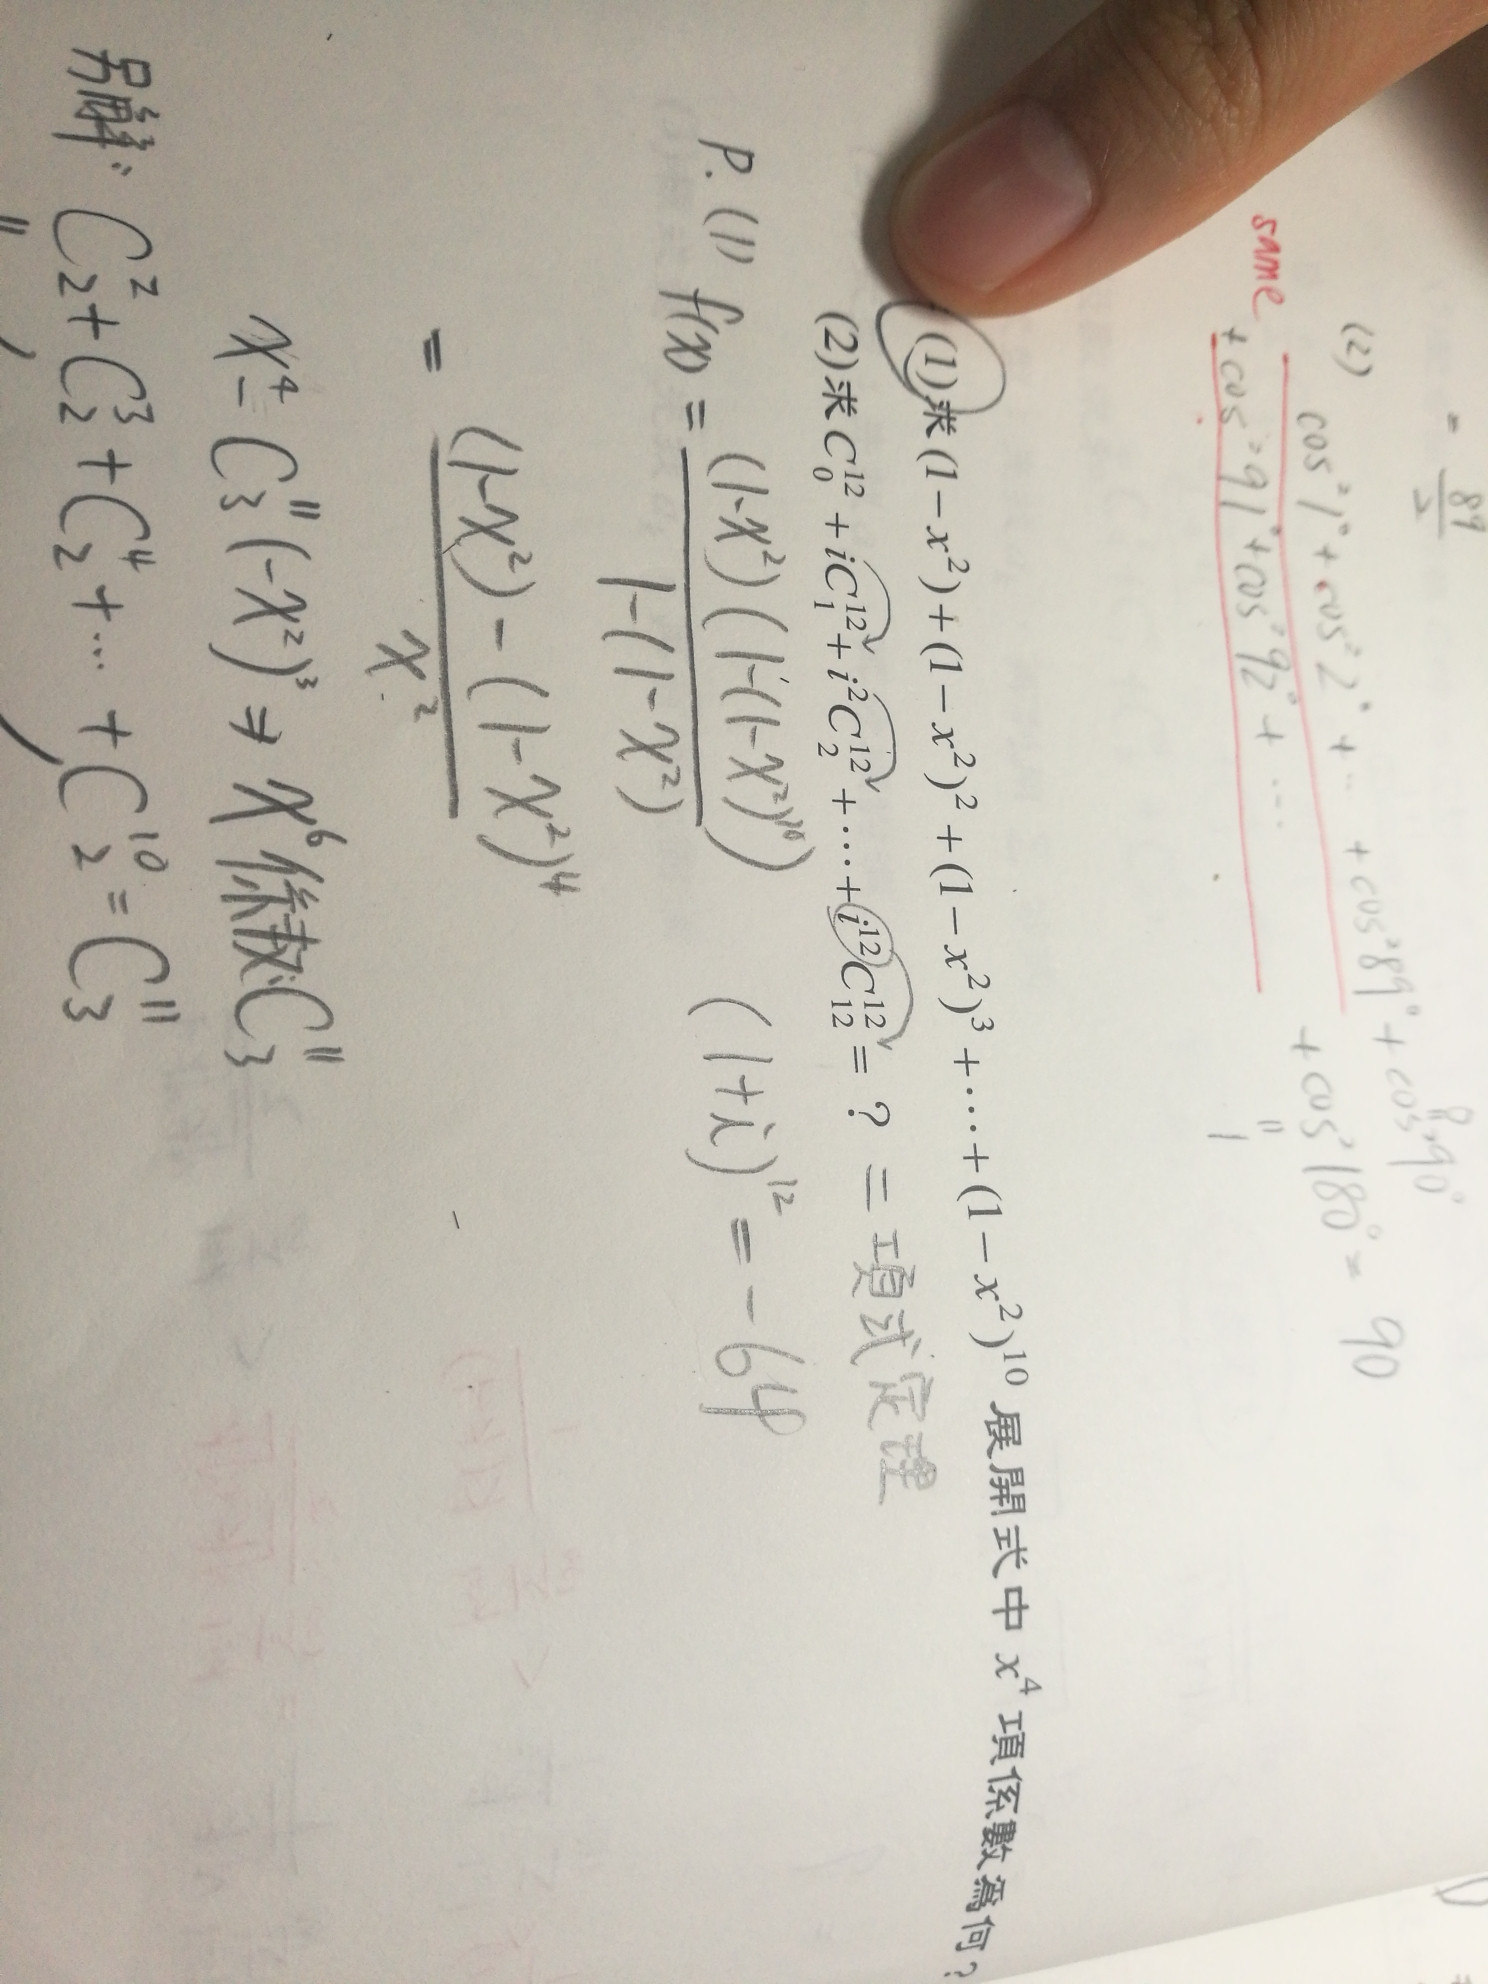 = 89/2
(2) cos²1° + cos²2° + ... + cos²89° + cos²90°
same + cos²91° + cos²92° + ... + cos²180° = 90
1
(1)求(1-x²)+(1-x²)²+(1-x²)³+⋯+(1-x²)¹⁰展開式中x⁴項係數為何?
(2)求C₀¹²+iC₁¹²+i²C₂¹²+⋯+i¹²C₁₂¹²=? 二項式定理
P. (1) f(x) = (1-x²)(1-(1-x²)¹⁰) / 1-(1-x²)    (1+i)¹² = -64
= (1-x²) - (1-x²)¹⁴ / x²
x⁴- C₃¹¹(-x²)³ ⇒ x⁶係數:C₃¹¹
另解: C₂²+C₂³+C₂⁴+... +C₂¹⁰ = C₃¹¹